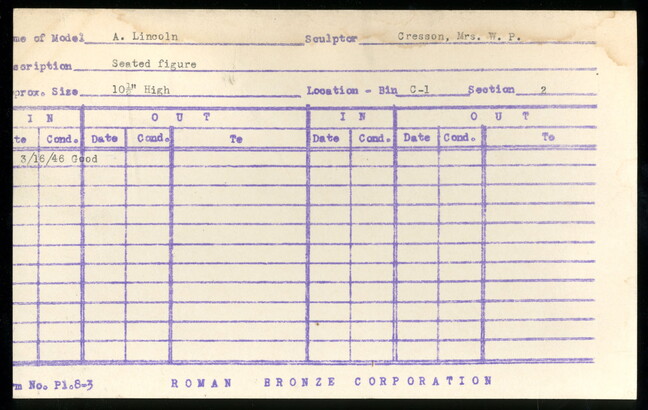 me of Model A. Lincoln Sculptor Cresson, Mrs. W. P.
scription Seated figure
prox. Size 10½" High Location - Bin C-1 Section 2
I N O U T I N O U T
te Cond. Date Cond. To Date Cond. Date Cond. To
3/16/46 Good
m No. P1.8-3 ROMAN BRONZE CORPORATION